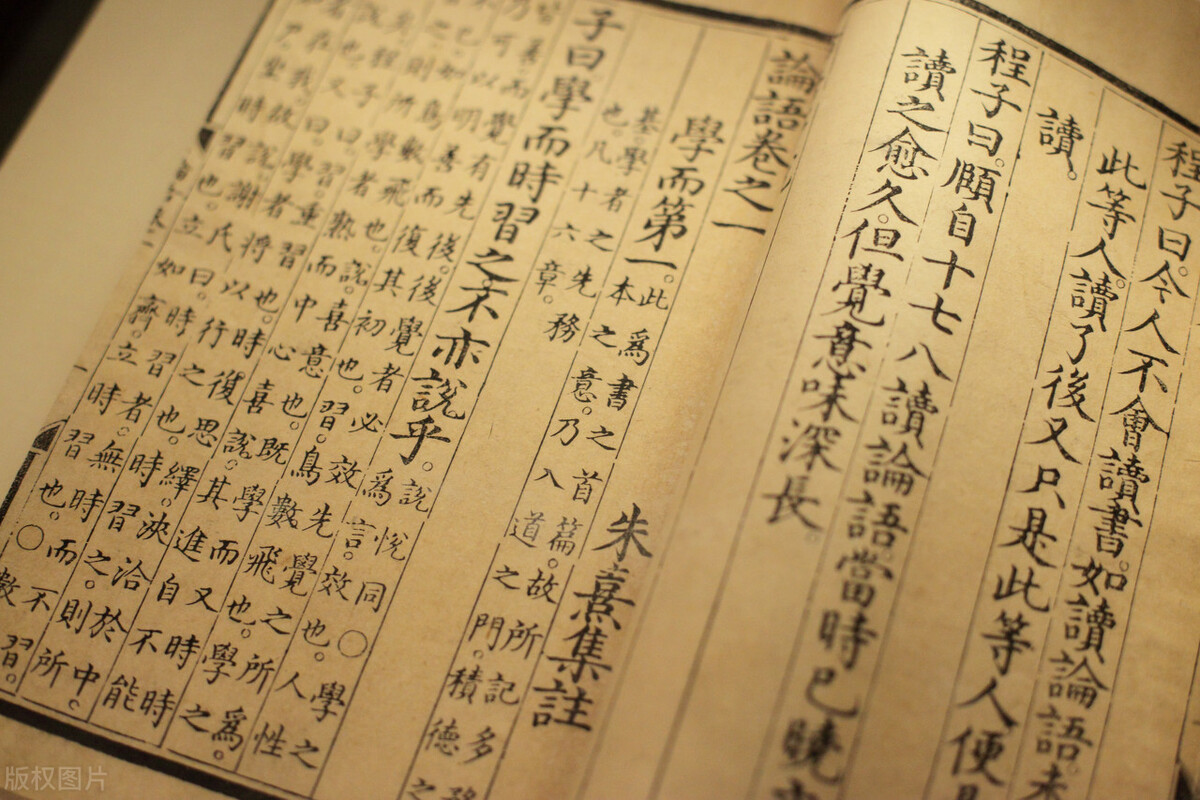 程子曰。今人不會讀書。如讀論語。未
此等人。讀了後又只是此等人便是
讀。
程子曰。頤自十七八讀論語當時已曉
讀之愈久。但覺意味深長。
論語卷之一 朱熹集註
學而第一。此為書之首篇。故所記多務
本之意。乃入道之門。積德之
基學者之先務
也。凡十六章。
子曰學而時習之不亦說乎。說悅同○學之
為言。效也。人性
皆善。而覺有先後。後覺者必效先覺之所為。
乃可以明善而復其初也。習。鳥數飛也。學之
不已。如鳥數飛也。說。喜意也。既學而又時時
習之。則所學者熟。而中心喜說。其進自不能
矣。程子曰。習。重習也。時復思繹。浹洽於中。則
也。又曰。學者將以行之也。時習之。則所
者在我。故說。謝氏曰。時習者。無時而不習。
尸。坐時習也。立如齊。立時習也。○
版权图片